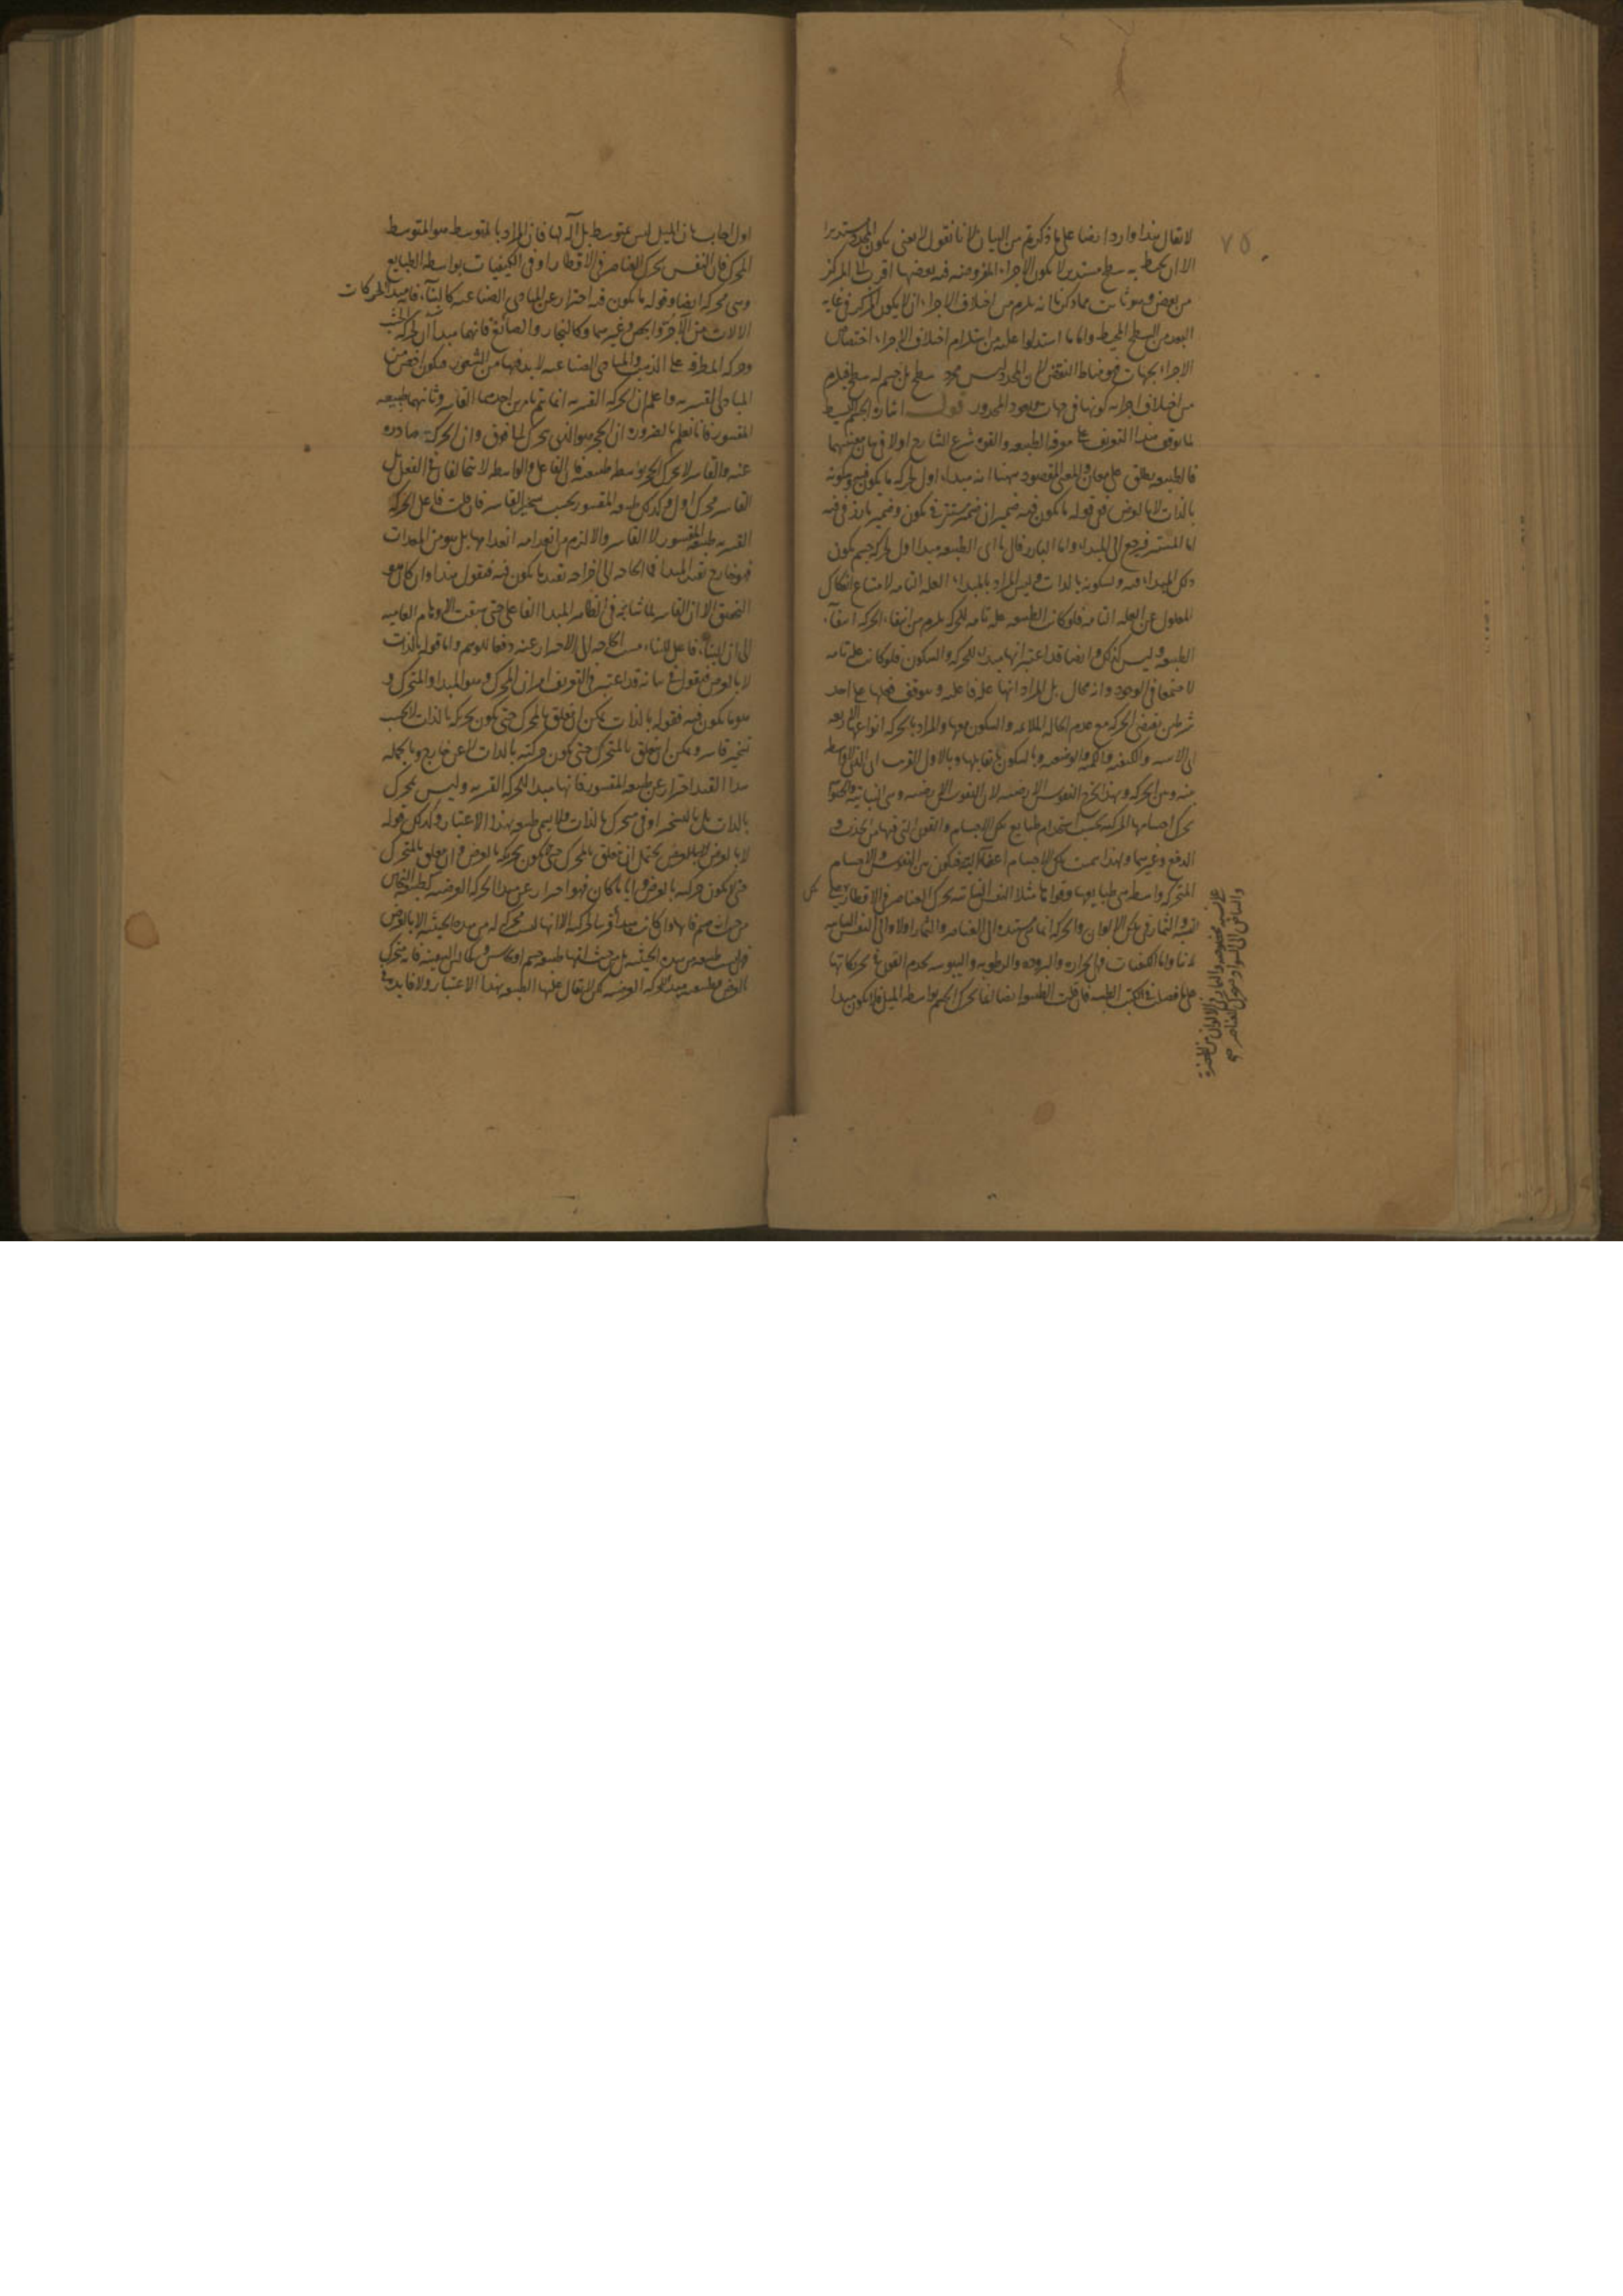 ٧٥
لا يقال هذا وارد ايضا على ما ذكرتم من البيان لانا نقول لا معنى لكون المحدد مستديرا
الا ان يحيط به سطح مستدير لا يكون الاجزاء المفروضة فيه بعضها اقرب الى المركز
من بعض وهو ثابت مما ذكرنا انه يلزم من اختلاف الاجزاء ان لا يكون المركز في غاية
البعد من السطح المحيط واما ما استدلوا عليه من استلزام اختلاف الاجزاء اختصاص
الاجزاء بجهات فهو مناط النقض لان المحدد ليس مجرد سطح بل جسم له سطح فيلزم
من اختلاف اجزائه كونها في جهات وجود المحدود قوله اشارة الجسم البسيط
لما توقف هذا التعريف على معرفة الطبيعة والقوة شرع الشارح اولا في بيان معنييهما
فالطبيعة يطلق على معان والمعنى المقصود ههنا انه مبداء اول لحركة ما يكون فيه وسكونه
بالذات لا بالعرض ففي قوله ما يكون فيه ضميران ضمير مستتر في يكون وضمير بارز في فيه
اما المستتر فيرجع الى المبداء واما البارز فالى ما اى الطبيعة مبدا اول لحركة جسم يكون
ذلك المبداء فيه ولسكونه بالذات وليس المراد بالمبداء العلة التامة لامتناع انفكاك
المعلول عن العلة التامة فلو كانت الطبيعة علة تامة للحركة يلزم من انتفاء الحركة انتفاء
الطبيعة وليس كذلك وايضا قد اعتبر انها مبداء للحركة والسكون فلو كانت علة تامة
لاجتمعا في الوجود وانه محال بل المراد انها علة فاعلة ويتوقف فعلها على احد
شرطين يقتضى الحركة مع عدم الحالة الملائمة والسكون معها والمراد بالحركة انواعها الاربعة
اى الاينية والكيفية والكمية والوضعية وبالسكون ما يقابلها وبالاول القريب اى الذى لا واسطة
بينه وبين الحركة وبهذا يخرج النفوس الارضية لان النفوس الارضية وهى النباتية والحيوانية
تحرك اجسامها المركبة بحسب استخدام طبايع تلك الاجسام والقوى التى فيها من الجذب و
الدفع وغيرهما ولهذا سميت تلك الاجسام اعضاء آلية فيكون بين النفوس والاجسام
المتحركة واسطة هى طبايعها وقواها مثلا النفس النباتية تحرك العناصر في الاقطار
والثمار في تلك الالوان والحركة انما هى مستندة الى العناصر والثمار اولا والى النفس النباتية
ثانيا واما الكيفيات فهى الحرارة والبرودة والرطوبة واليبوسة يخدم القوى في تحريكاتها
على ما فصلت في الكتب الطبية فان قلت الطبيعة ايضا انما تحرك الجسم بواسطة الميل فلا يكون مبدا
اول اجاب بان الميل ليس بمتوسط بل آلة لها فان المراد بالمتوسط هو المتوسط
المحرك فان النفس تحرك العناصر في الاقطار او في الكيفيات بواسطة الطبايع
وهى محركة ايضا وقوله ما يكون فيه احتراز عن المبادى الصناعية كالبناء فانه مبدأ لحركات
الالات من الآجر والجص وغيرهما وكالنجار والصائغ فانهما مبدآن لحركة الخشب
وحركة المطرقة على الذهب والمبادى الصناعية لا بد فيها من الشعور فيكون اخص من
المبادى القسرية واعلم ان الحركة القسرية انما يتم بامرين احدهما القاسر وثانيهما طبيعة
المقسور فانا نعلم بالضرورة ان الحجر هو الذى يتحرك الى فوق وان الحركة صادرة
عنه والقاسر لا يحرك الحجر الا بواسطة طبيعته فان الفاعل والواسطة لا يتخالفان في الفعل بل
القاسر محرك اول وكذلك طبيعة المقسور بحسب تسخير القاسر فان قلت فاعل الحركة
القسرية طبيعة المقسور لا القاسر والا لزم من انعدامه انعدامها بل هو من المعدات
فهو خارج بقيد المبدا فما الحاجة الى اخراجه بقيد ما يكون فيه فنقول هذا وان كان هو
التحقيق الا ان القاسر لما شابه في الظاهر المبدا الفاعلى حتى سبقت الاوهام العامية
الى ان البناء فاعل للبناء مست الحاجة الى الاحتراز عنه دفعا للوهم واما قوله بالذات
لا بالعرض فيقول في بيانه قد اعتبر في التعريف امران المحرك وهو المبدا والمتحرك و
هو ما يكون فيه فقوله بالذات يمكن ان يتعلق بالمحرك حتى يكون تحريكه بالذات لا بحسب
تسخير قاسر ويمكن ان يتعلق بالمتحرك حتى يكون حركته بالذات لا عن خارج وبالجملة
هذا القيد احتراز عن طبيعة المقسور فانها مبدا للحركة القسرية وليس تحرك
بالذات بل بالتسخير او في متحرك بالذات ولا يسمى طبيعة بهذا الاعتبار وكذلك قوله
لا بالعرض يحتمل ان يتعلق بالمحرك حتى يكون تحريكه بالعرض وان يتعلق بالمتحرك
حتى لا يكون حركته بالعرض واياما كان فهو احتراز عن مبدا الحركة العرضية كطبيعة النحاس
من حيث هو صنم فانها وان كانت مبدأ قريبا لحركته الا انها ليست محركة له من هذه الحيثية الا بالعرض
بل من حيث انها طبيعة جسم او نحاس
بالعرض وطبيعته مبدا لحركته العرضية لكن لا يقال عليها الطبيعة بهذا الاعتبار ولا فايدة في